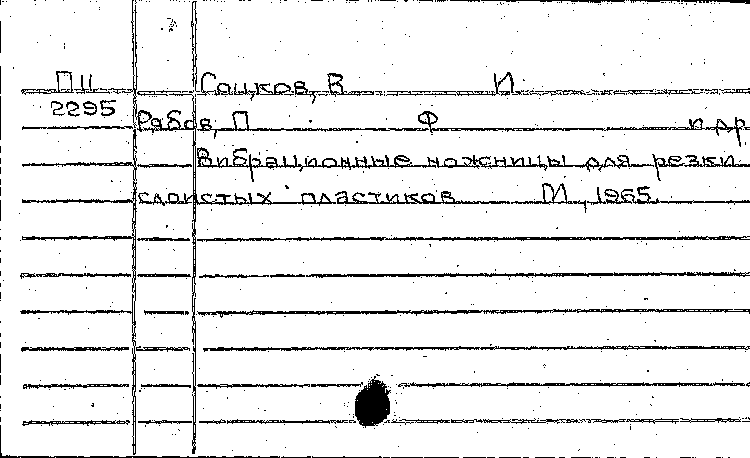 П11 Сацков, В И
2295 Рябов, П Ф и др
Вибрационные ножницы для резки
слоистых пластиков М, 1965.